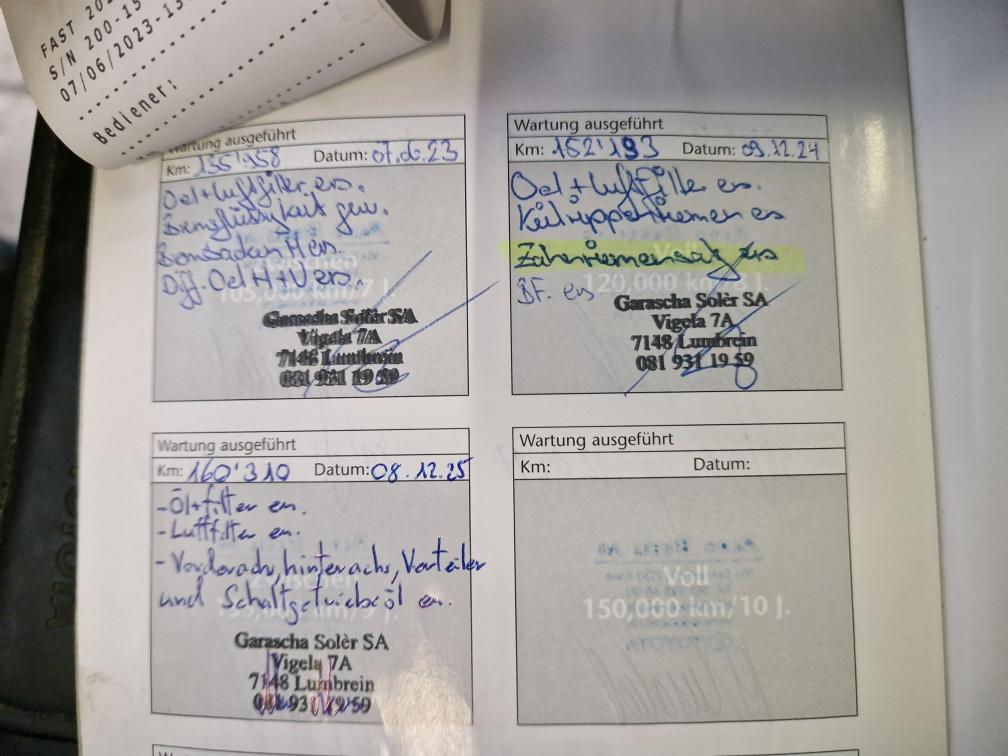 FAST 202
S/N 200-15
07/06/2023-13
Bediener:
Wartung ausgeführt
Km: 135'958 Datum: 07.06.23
Oel + Luftfilter ers.
Bremsflüssigkeit gew.
H ers.
Diff. Oel H+V ers.
105,000 km/7 J.
Garascha Solèr SA
Vigela 7A
7148 Lumbrein
081 931 19 59
Wartung ausgeführt
Km: 152'193 Datum: 09.12.24
Oel + Luftfilter ers.
Keilrippenriemen ers
Voll
Zahnriemensatz ers
120,000 km/8 J.
BF. ers
Garascha Solèr SA
Vigela 7A
7148 Lumbrein
081 931 19 59
Wartung ausgeführt
Km: 160'310 Datum: 08.12.25
- Öl+filter er.
- Luftfilter er.
- Vorderachs, hinterachs, Verteiler
und Schaltgetriebeöl er.
Garascha Solèr SA
Vigela 7A
7148 Lumbrein
081 931 19 59
Wartung ausgeführt
Km: Datum:
Voll
150,000 km/10 J.